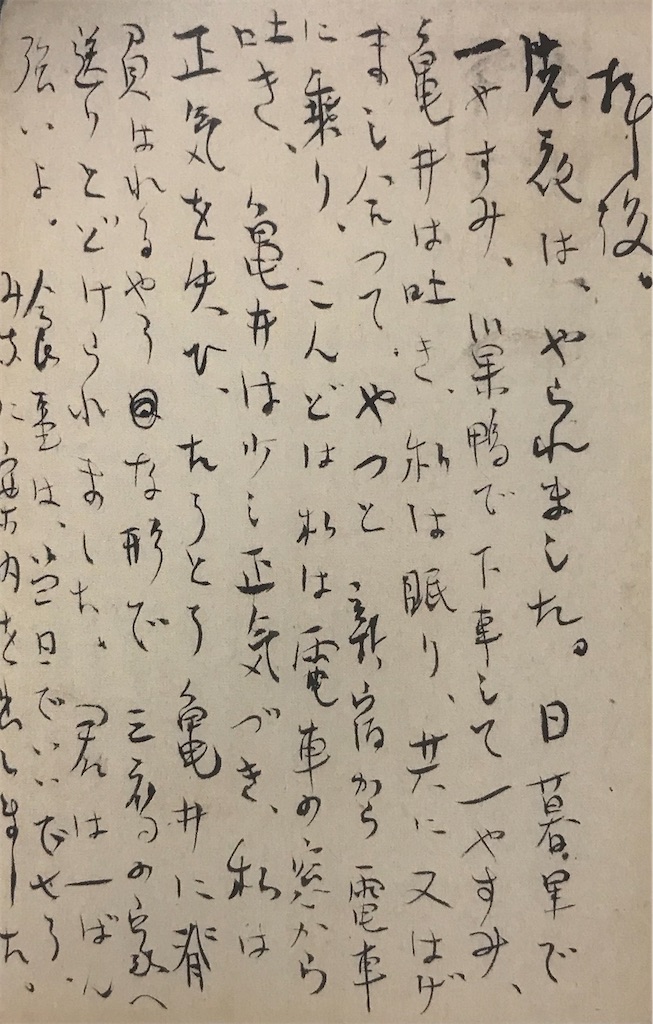 拝復。
先夜は、やられました。日暮里で
一やすみ、巣鴨で下車して一やすみ、
亀井は吐き、私は眠り、共に又はげ
まし合つて、やつと新宿から電車
に乗り、こんどは私は電車の窓から
吐き、亀井は少し正気づき、私は
正気を失ひ、たうとう亀井に脊
負はれるやうな形で三鷹の家へ
送りとどけられました。君は一ばん
強いよ。
会費は、当日でいいでせう、
みなに案内を出しました。